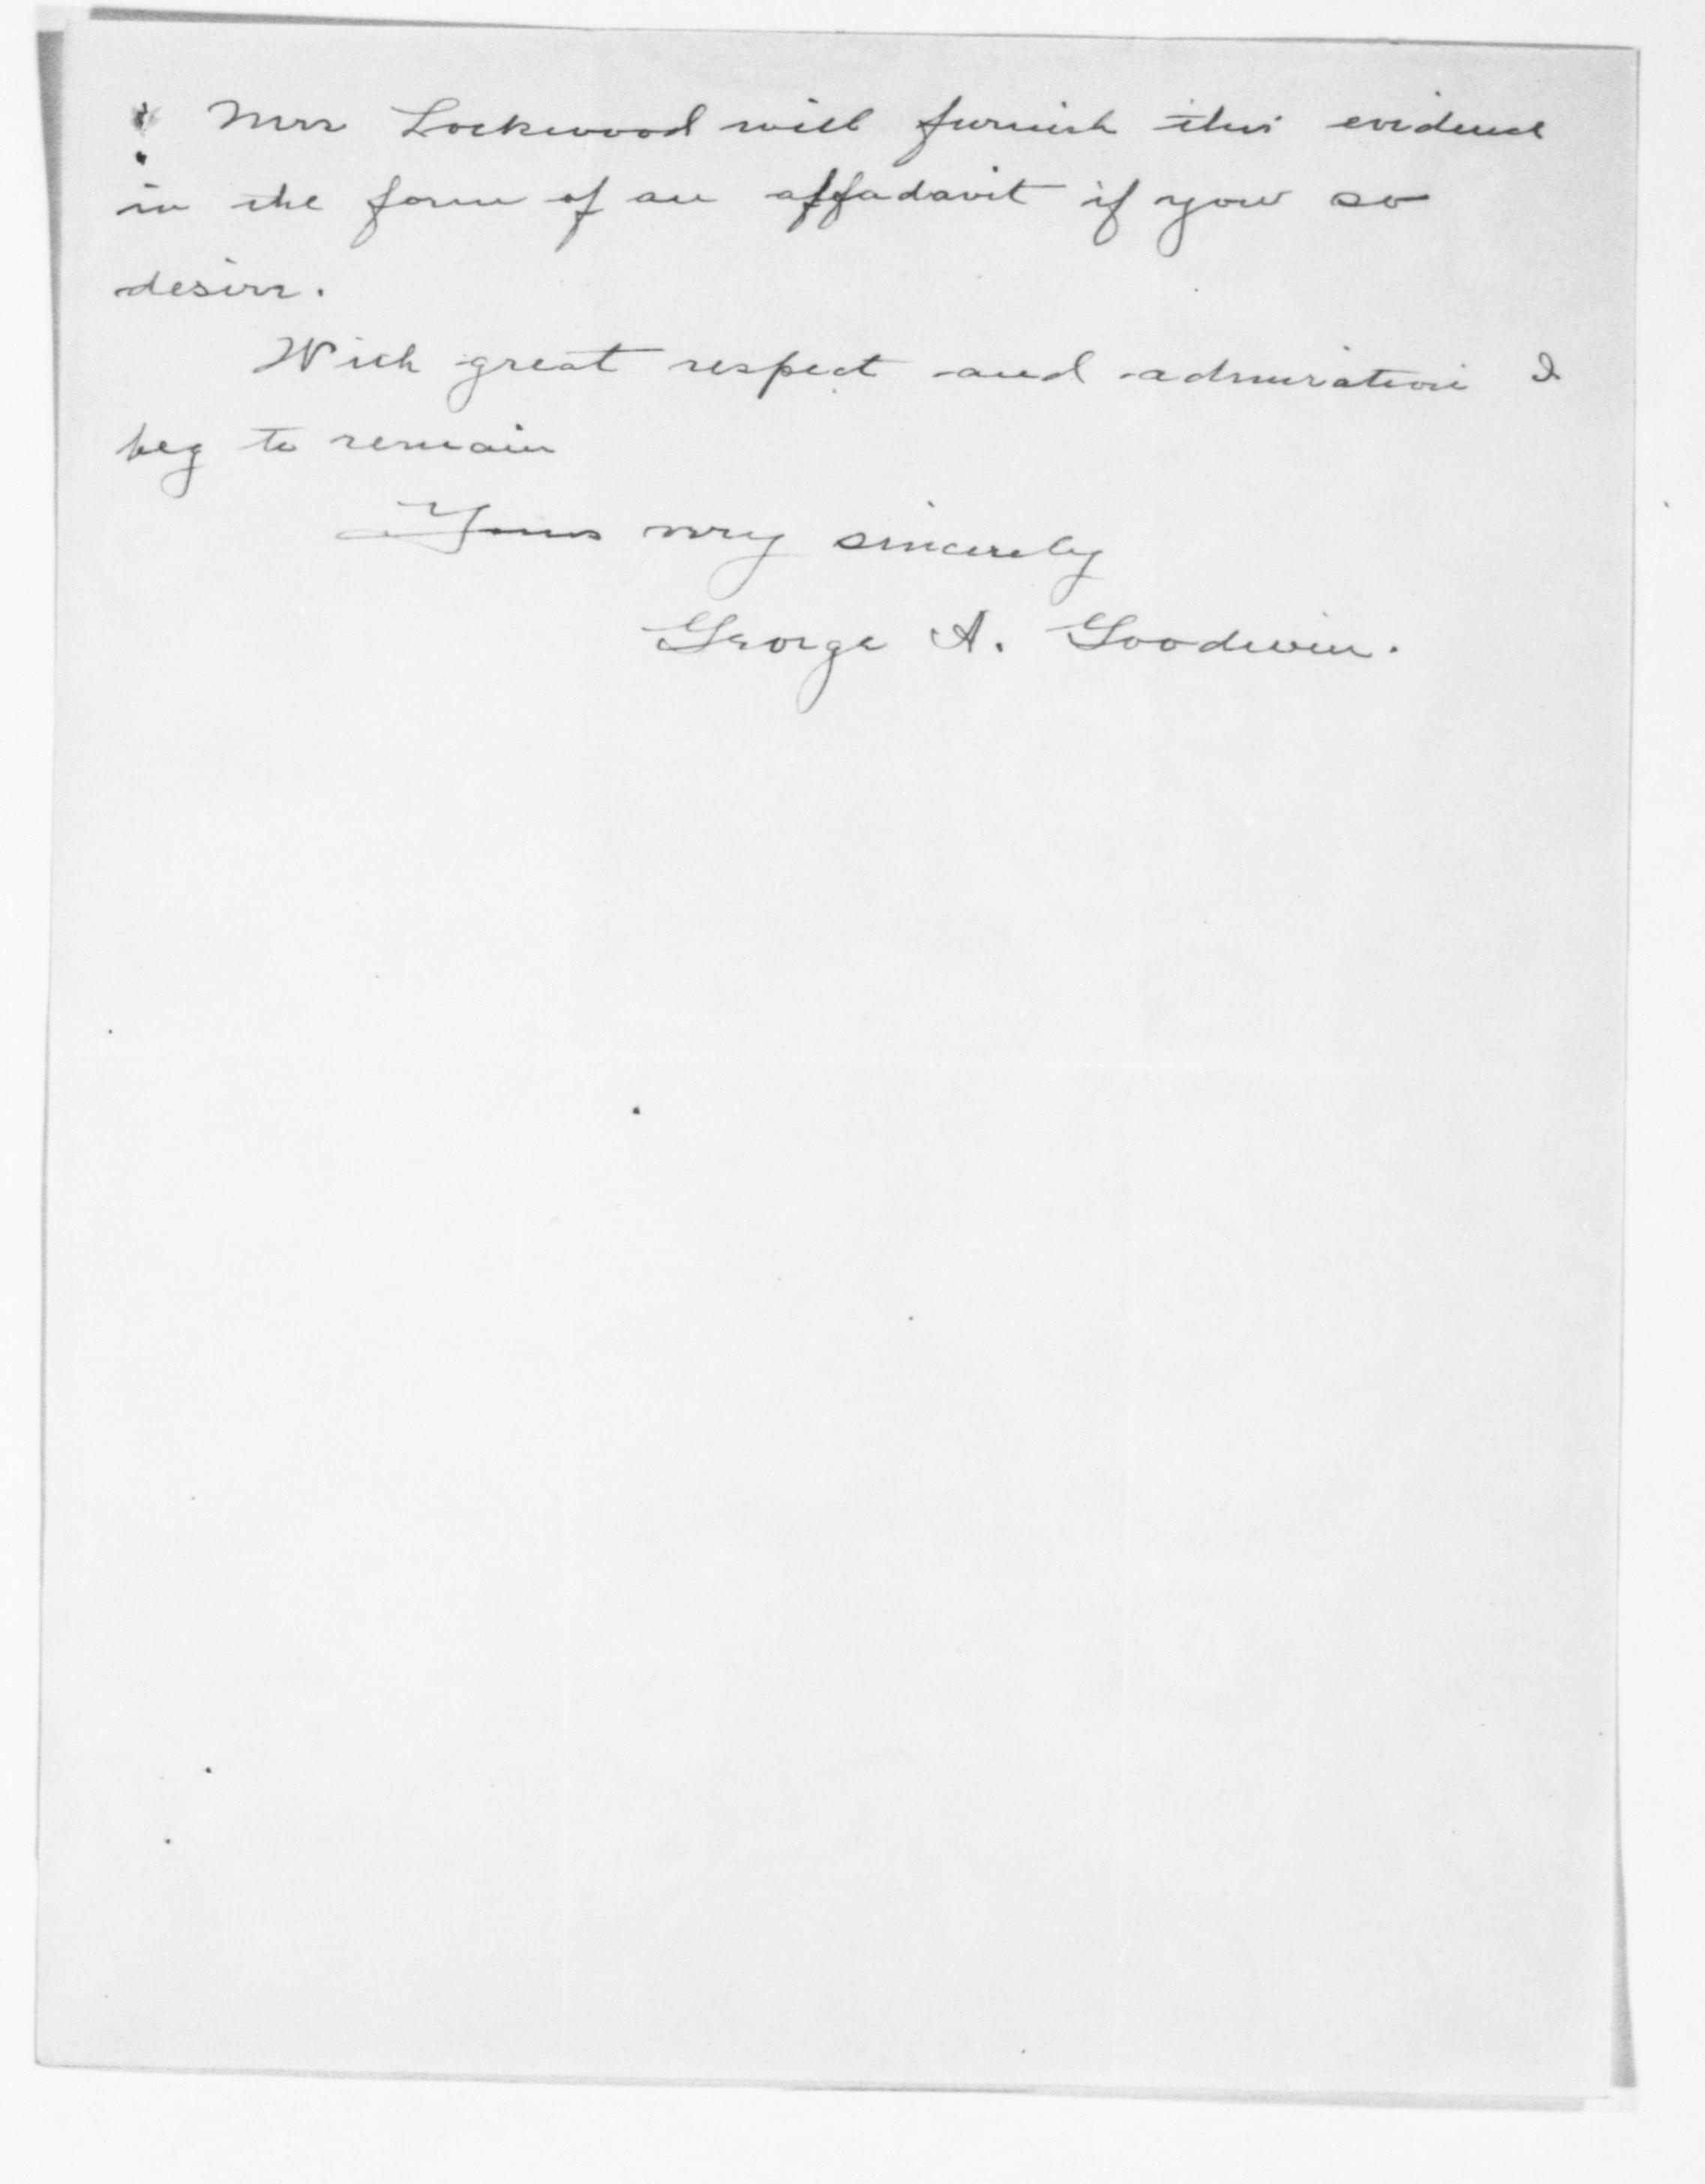 Mrs Lockwood will furnish this evidence
in the form of an affadavit if you so
desire.
With great respect and admiration I
beg to remain
Yours very sincerely
George A. Goodwin.